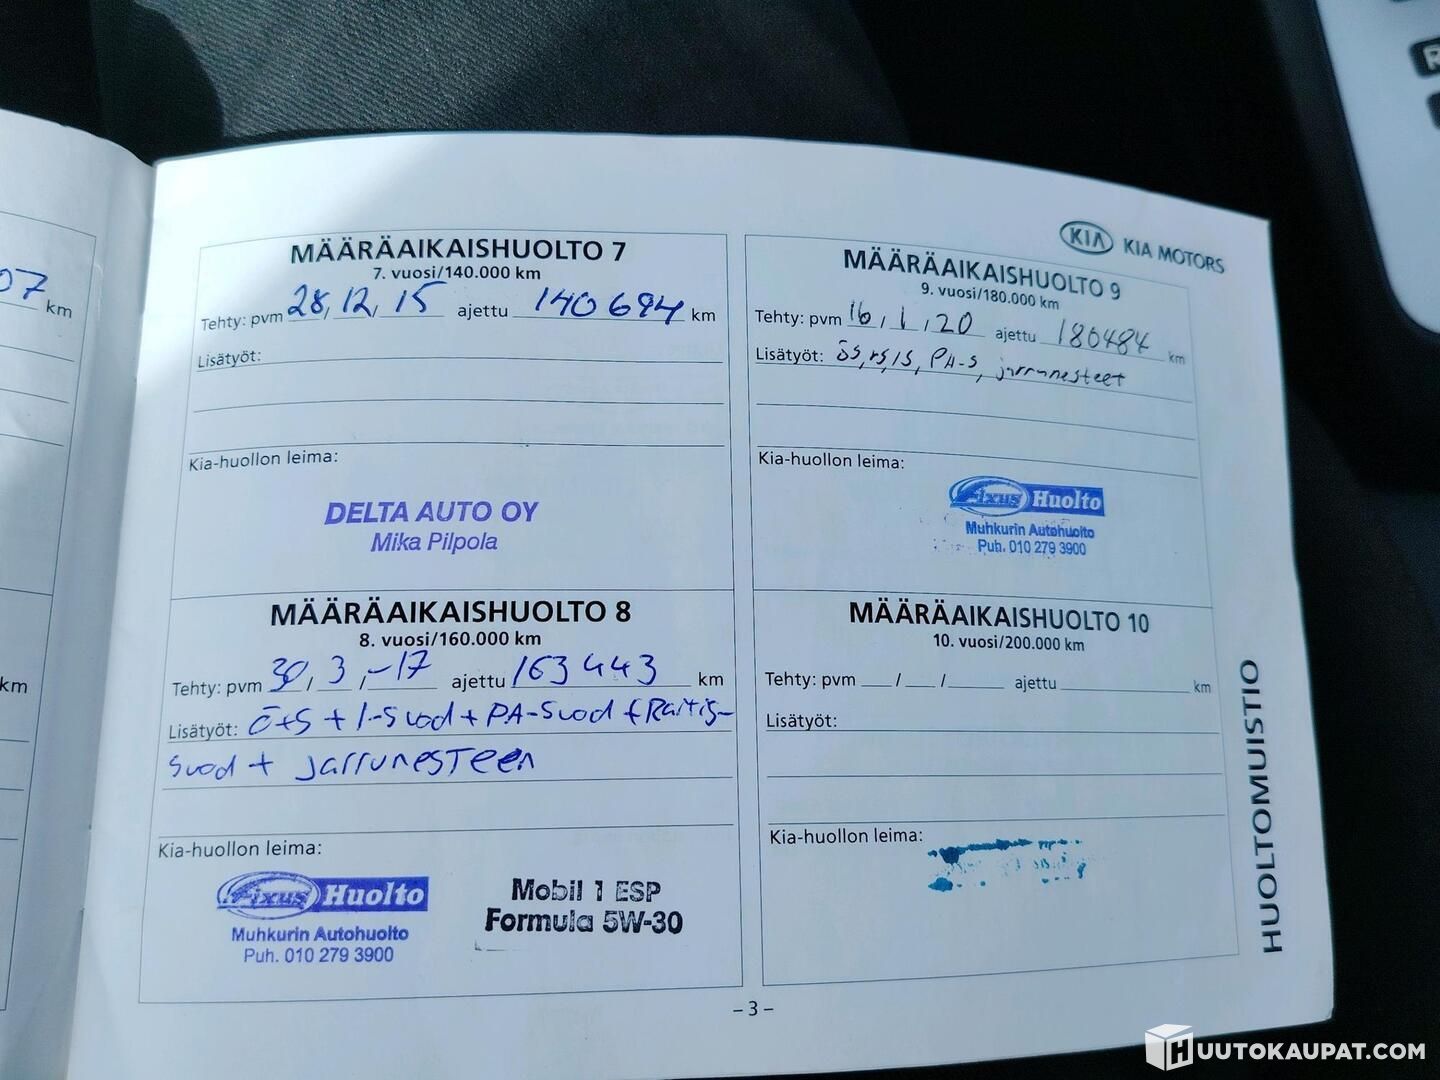 07 km
km
MÄÄRÄAIKAISHUOLTO 7
7. vuosi/140.000 km
Tehty: pvm 28, 12, 15 ajettu 140694 km
Lisätyöt:
Kia-huollon leima:
DELTA AUTO OY
Mika Pilpola
MÄÄRÄAIKAISHUOLTO 8
8. vuosi/160.000 km
Tehty: pvm 30, 3, -17 ajettu 163443 km
Lisätyöt: ö+s + I-Suod + PA-Suod + Raitis-
suod + jarrunesteen
Kia-huollon leima:
Fixus Huolto
Muhkurin Autohuolto
Puh. 010 279 3900
Mobil 1 ESP
Formula 5W-30
KIA KIA MOTORS
MÄÄRÄAIKAISHUOLTO 9
9. vuosi/180.000 km
Tehty: pvm 16, 1, 20 ajettu 180484 km
Lisätyöt: ös, rs, is, PA-s, jarrunesteet
Kia-huollon leima:
Fixus Huolto
Muhkurin Autohuolto
Puh. 010 279 3900
MÄÄRÄAIKAISHUOLTO 10
10. vuosi/200.000 km
Tehty: pvm / / ajettu km
Lisätyöt:
Kia-huollon leima:
HUOLTOMUISTIO
– 3 –
R
HUUTOKAUPAT.COM